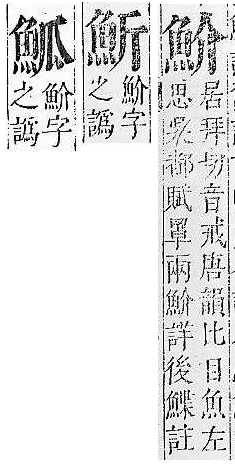 魪
居拜切音戒唐韻比目魚左
思吳都賦罩兩魪詳後鰈註
魪字
之譌
魪字
之譌